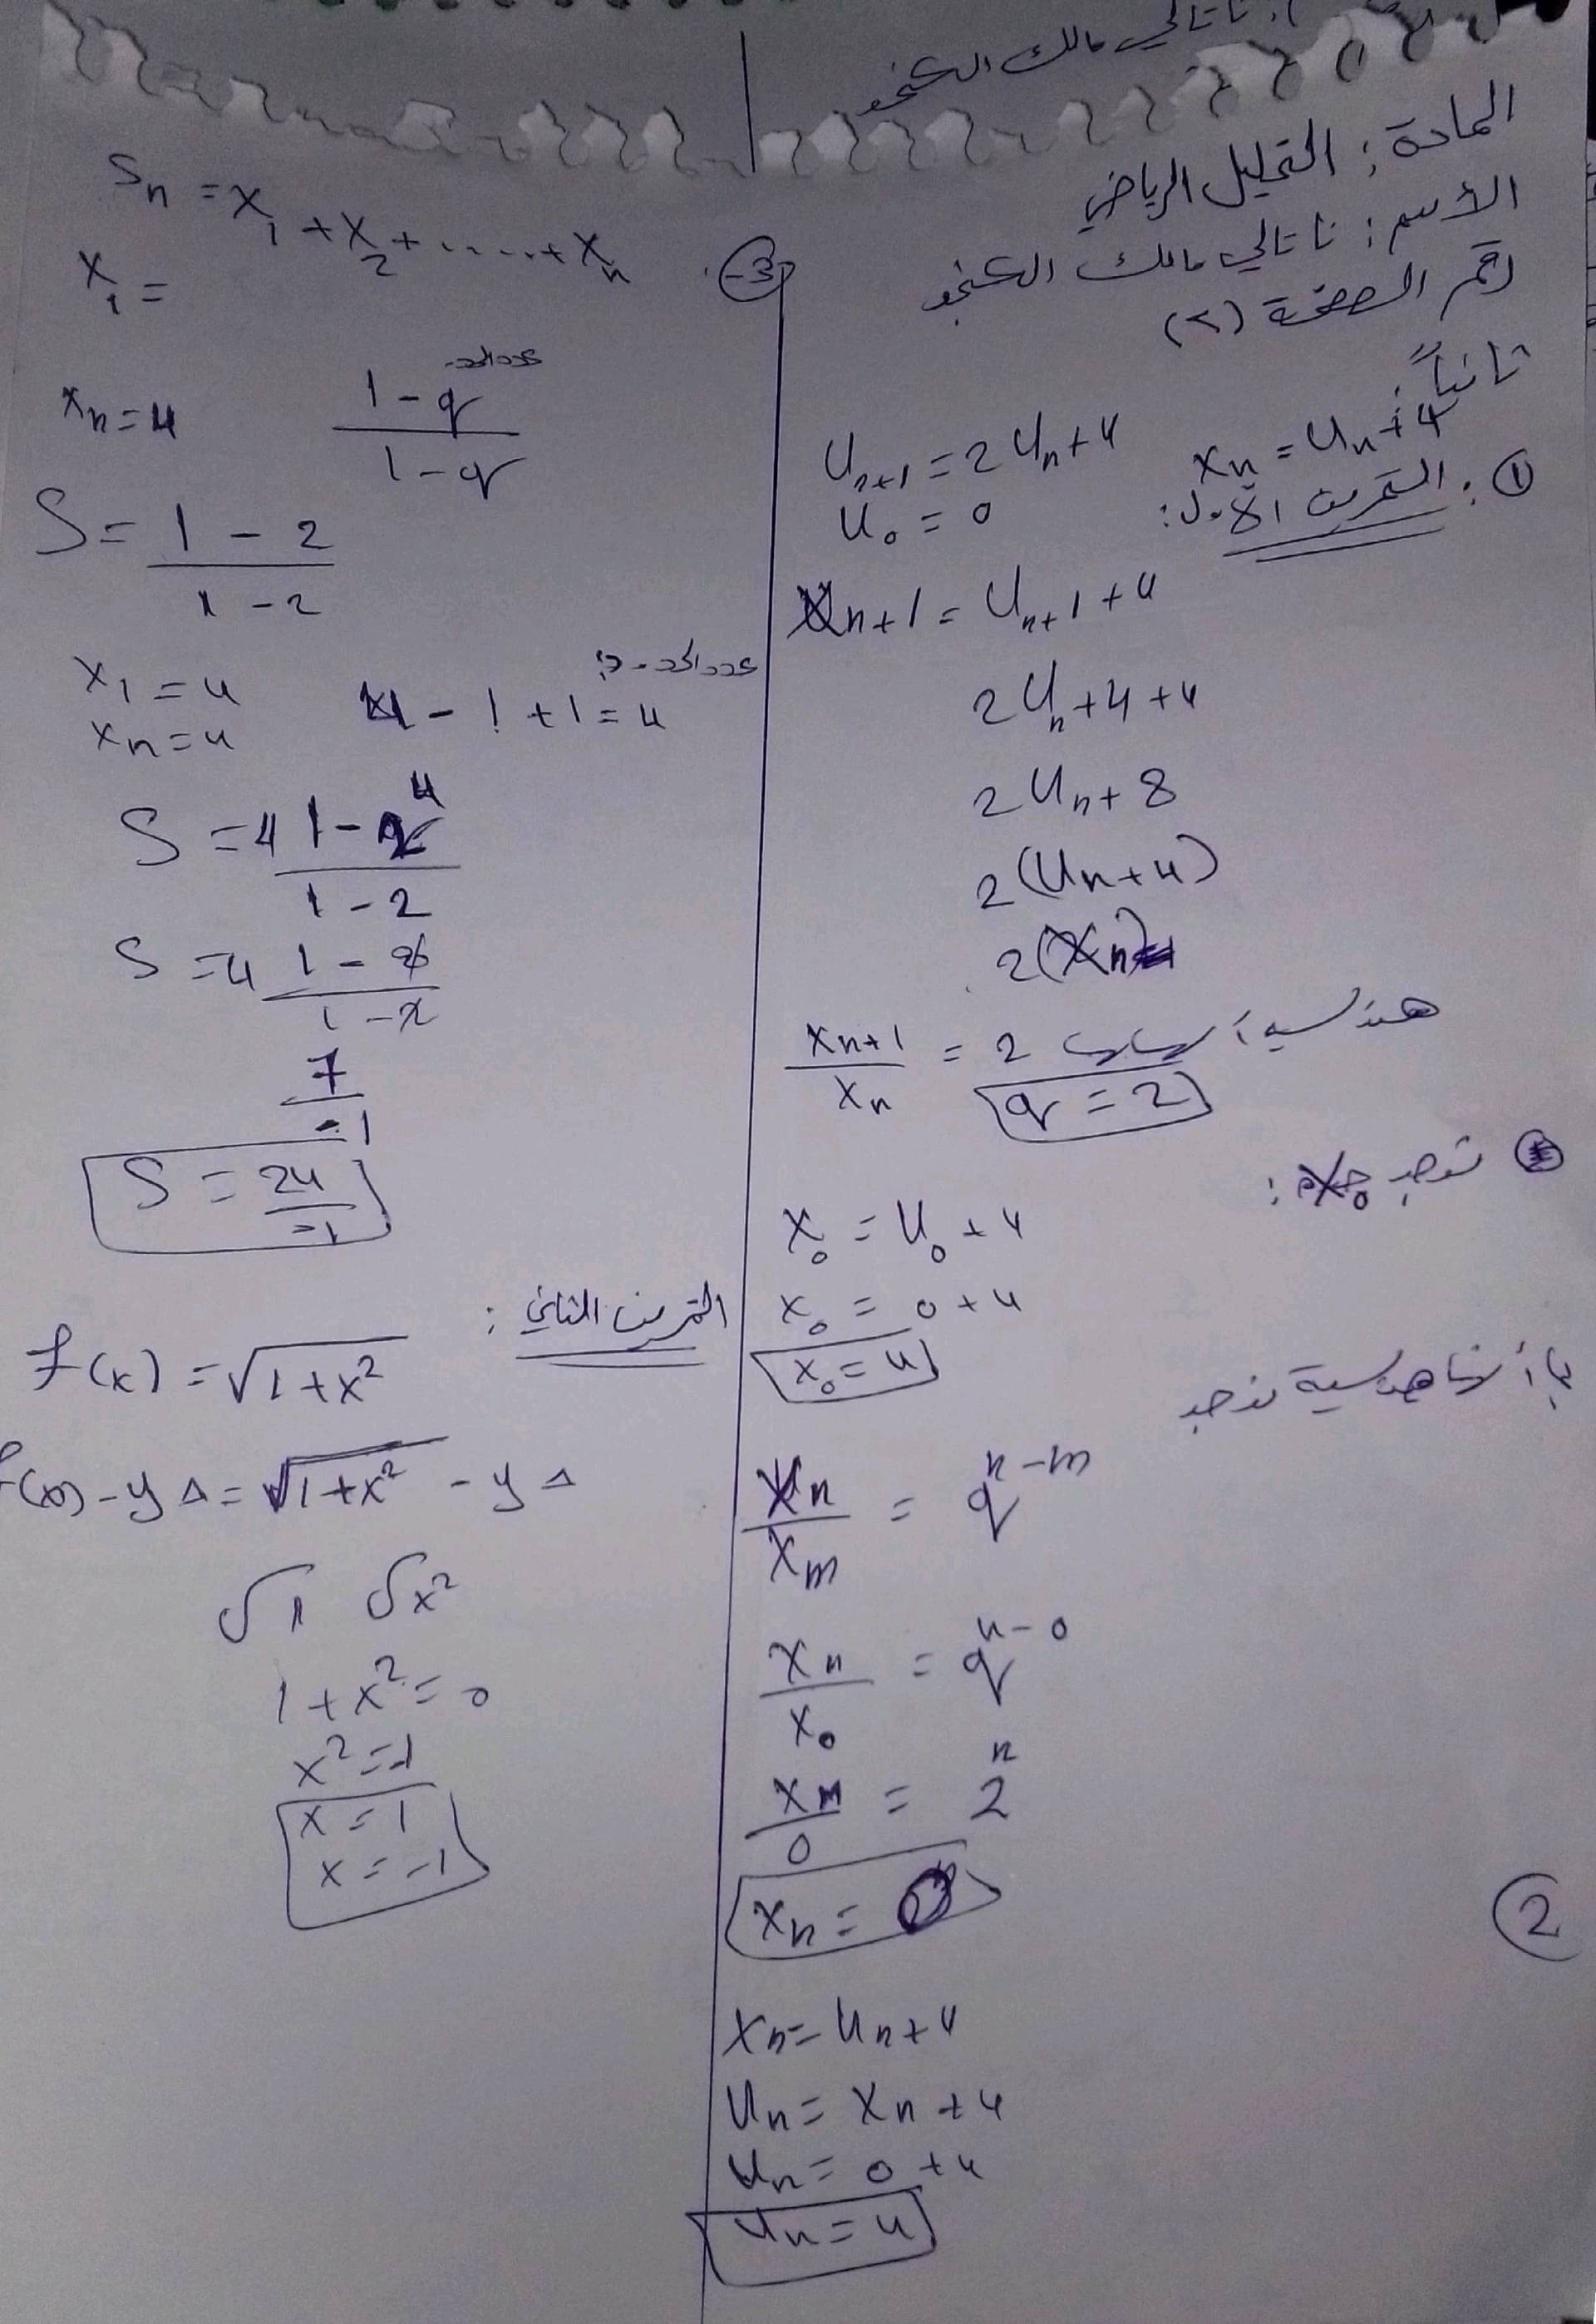 ناتالي مالك الكنجو
المادة: التحليل الرياضي
الاسم: ناتالي مالك الكنجو
رقم الصفحة (٢)
ثانياً:
Uₙ₊₁ = 2Uₙ + 4
xₙ = Uₙ + 4
U₀ = 0
① التمرين الأول:
Xₙ₊₁ = Uₙ₊₁ + 4
2Uₙ + 4 + 4
2Uₙ + 8
2(Uₙ + 4)
2(Xₙ)
xₙ₊₁ / xₙ = 2 هندسية أساسها
q = 2
② نوجد x₀:
x₀ = U₀ + 4
x₀ = 0 + 4
x₀ = 4
بما أنها هندسية نوجد
xₙ / xₘ = qⁿ⁻ᵐ
xₙ / x₀ = qⁿ⁻⁰
xₙ / 0 = 2ⁿ
xₙ =
②
xₙ = Uₙ + 4
Uₙ = xₙ + 4
Uₙ = 0 + 4
Uₙ = 4
③
Sₙ = x₁ + x₂ + ..... + xₙ
x₁ =
xₙ = 4
(1 - q^عدد الحدود) / (1 - q)
S = (1 - 2) / (1 - 2)
x₁ = 4
عدد الحدود:
xₙ = 4
4 - 1 + 1 = 4
S = 4 (1 - 2⁴) / (1 - 2)
S = 4 (1 - 8) / (1 - 2)
7 / -1
S = 24 / -1
التمرين الثاني:
f(x) = √(1 + x²)
f(x) - y∆ = √(1 + x²) - y∆
√1 √x²
1 + x² = 0
x² = -1
x = 1
x = -1